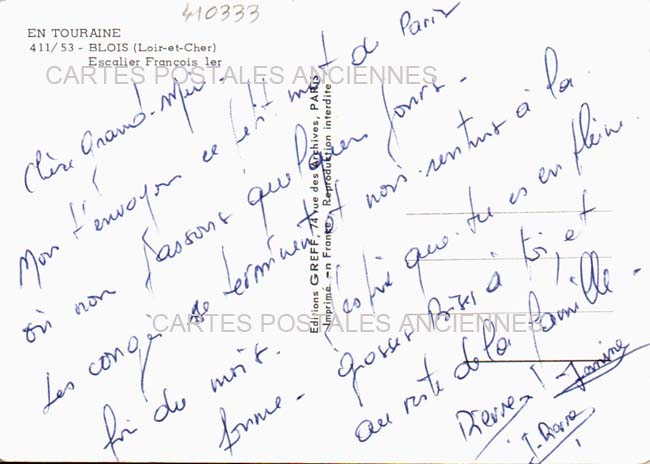 410333
EN TOURAINE
411/53 - BLOIS (Loir-et-Cher)
Escalier François 1er
CARTES POSTALES ANCIENNES
Chère Grand-Mère
Nous t'envoyons ce petit mot de Paris
où nous passons quelques jours.
Les congés se terminent et nous rentrons à la
fin du mois. J'espère que tu es en pleine
forme. grosses bises à toi, et
au reste de la famille.
Pierre Janine
J. Pierre
Editions GREFF, 74 rue des Archives, PARIS
Imprimé en France - Reproduction interdite
CARTES POSTALES ANCIENNES